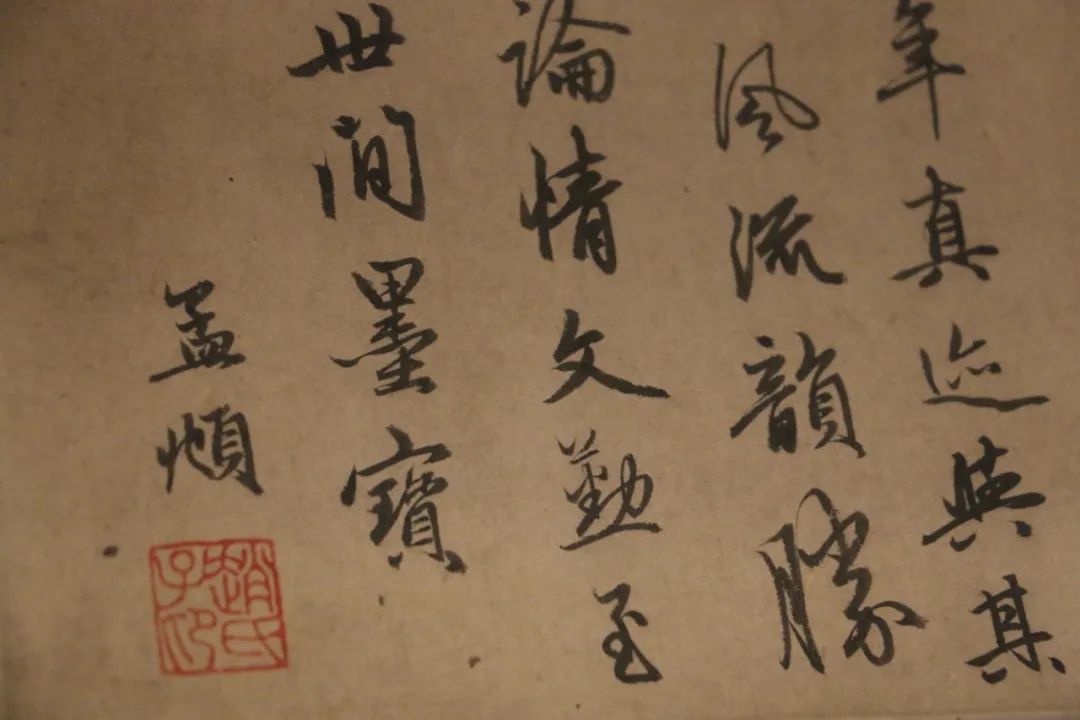 年真迹與其
風流韻勝
論情文勤至
世間墨寶
孟頫
趙氏子昂